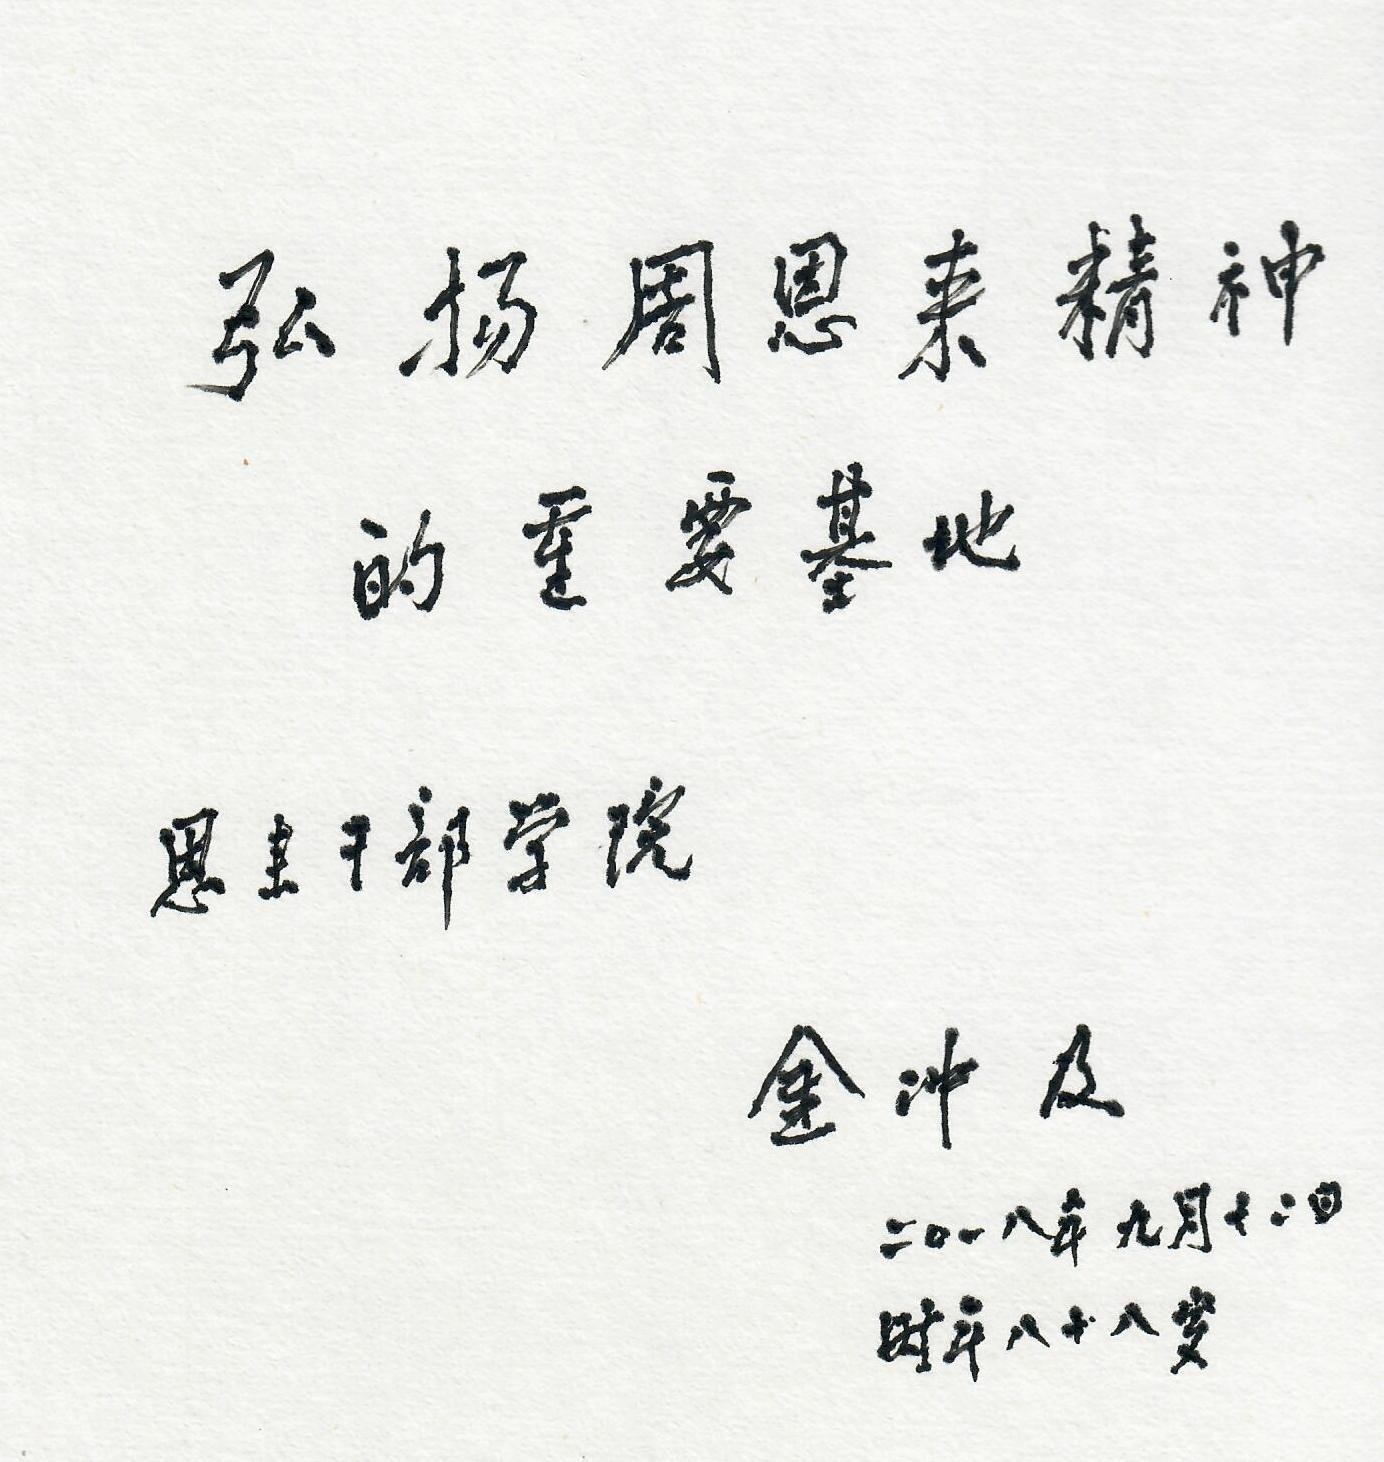 弘扬周恩来精神
的重要基地
恩来干部学院
金冲及
二〇一八年九月十二日
时年八十八岁